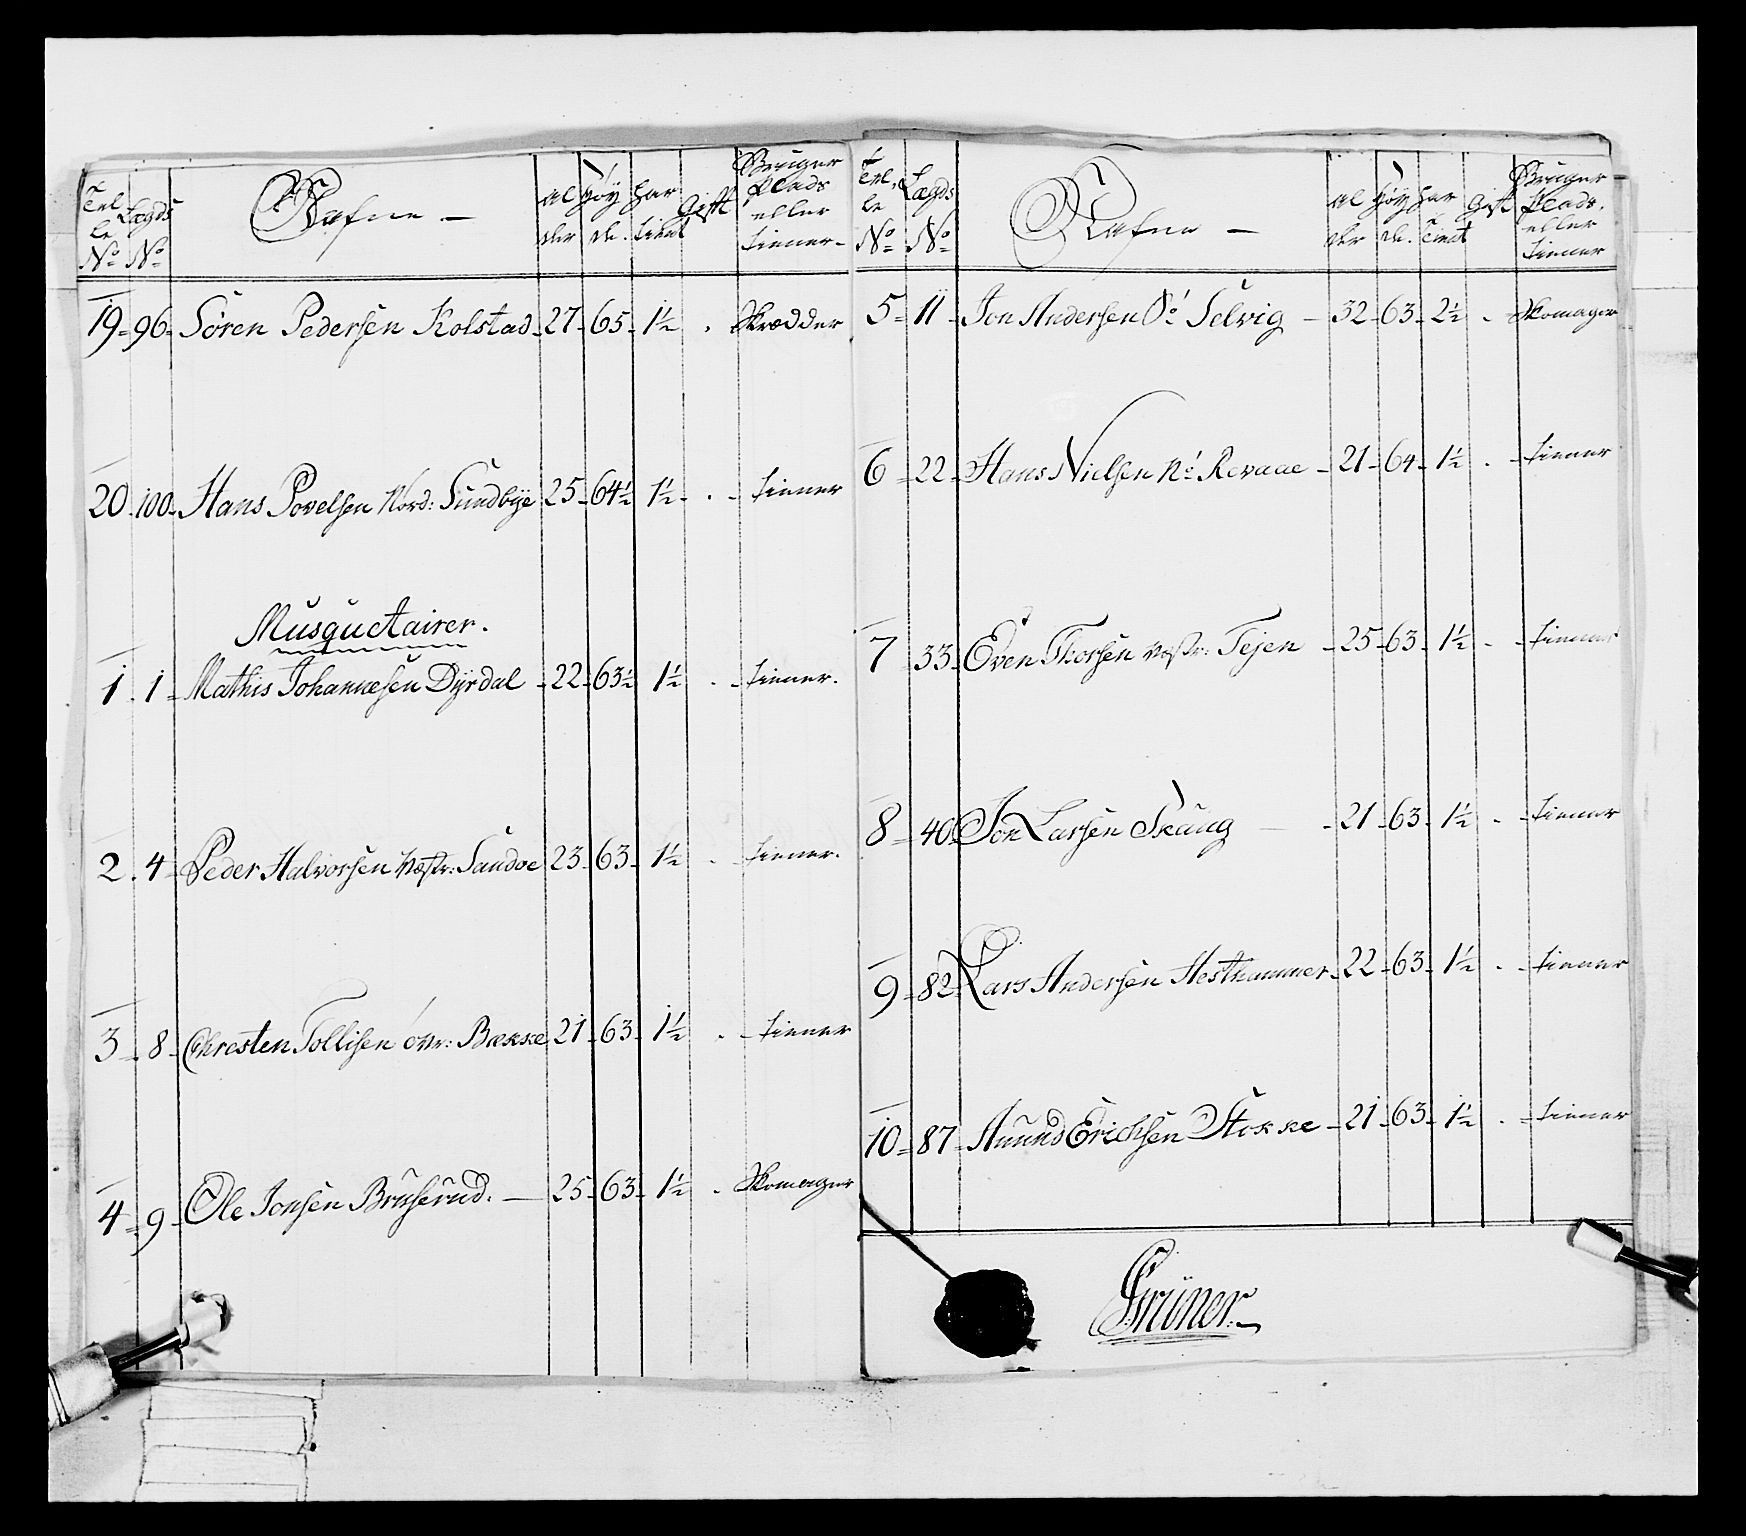 Tel le No Lægds No Nafne – al der Høy de. har tient Gift Bruger Plads eller tiener –
19 - 96 - Sören Pedersen Kolstad - 27 - 65 - 1½ . Skrædder
20 - 100 - Hans Povelsen Nord: Sundbye 25 - 64½ 1½ - . - tiener
Musquetairer.
1 - 1 - Mathis Johannesen Dyrdal - 22 - 63½ 1½ . - tiener.
2 . 4 - Peder Halvorsen Væstr: Sandoe 23 - 63 - 1½ . - tiener.
3 - 8 - Chresten Tollisen övr: Bække 21 - 63 - 1½ . - tiener
4 - 9 - Ole Jonsen Bruserud. — 25 - 63 - 1½ . Skomager
Tel le No Lægds No Nafne – al der Höy de. har tient Gift Bruger Plads. eller tiener
5 - 11 - Jon Andersen Sö: Selvig – 32 - 63 - 2½ . - Skomager
6 - 22 - Hans Nielsen No: Revaae - 21 - 64 - 1½ . - tiener
7 - 33 - Even Thorsen Væstr: Tejen - 25 - 63 - 1½ - . - tiener
8 - 40 Jon Larsen Skaug — - 21 - 63 - 1½ . - tiener
9 - 82 - Lars Andersen Hesthammer - 22 - 63 - 1½ . - tiener
10 - 87 - Aunds Erichsen Stokke - 21 - 63 - 1½ . - tiener
Grüner.